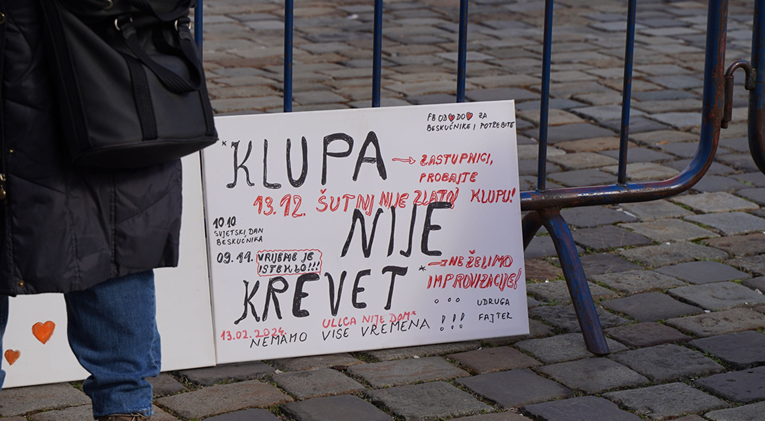 FB OD♥DO♥ ZA
BESKUĆNIKE I POTREBITE
*KLUPA → ZASTUPNICI,
PROBAJTE
KLUPU!
13.12. ŠUTNJ NIJE ZLATO!
10.10
SVJETSKI DAN
BESKUĆNIKA
NIJE
09.11. VRIJEME JE
ISTEKLO!!!
*→ NE ŽELIMO
IMPROVIZACIJE!
KREVET
13.02.2024 ULICA NIJE DOM*
NEMAMO VIŠE VREMENA !!!
UDRUGA
FAJTER